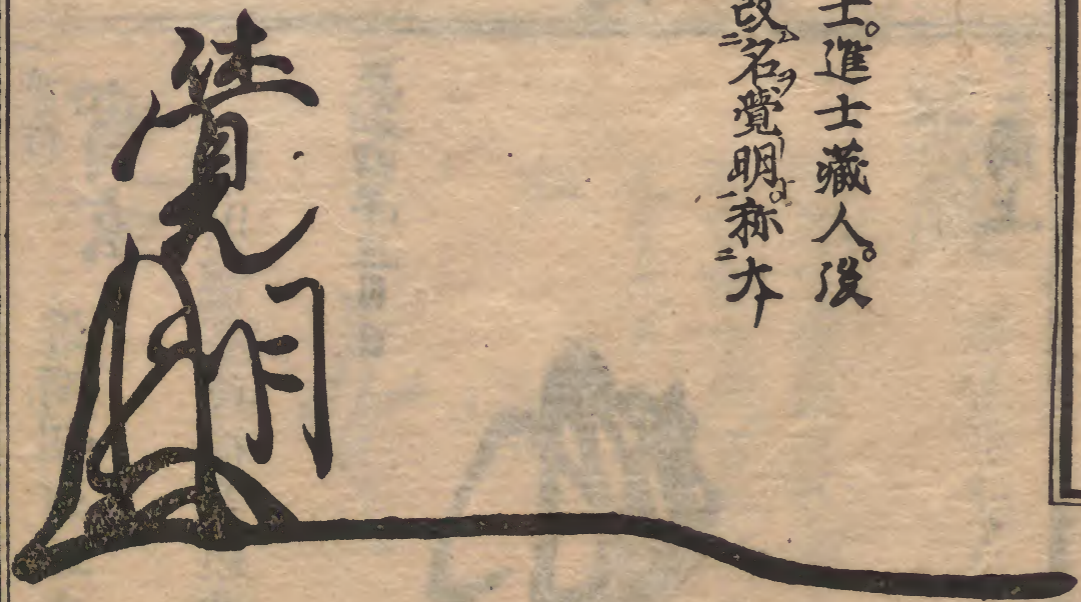 士。進士藏人。後
改名覺明。称大
覺明